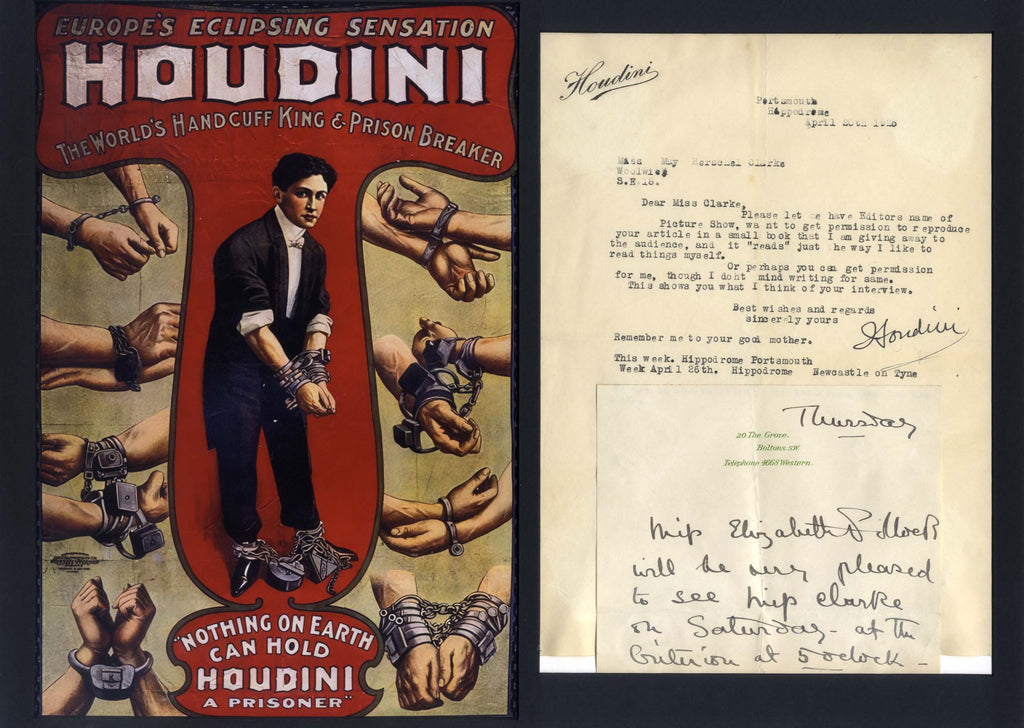 EUROPE'S ECLIPSING SENSATION
HOUDINI
THE WORLD'S HANDCUFF KING & PRISON BREAKER
"NOTHING ON EARTH
CAN HOLD
HOUDINI
A PRISONER"
Houdini
Portsmouth
Hippodrome
April 20th 1920
Miss May Herschel Clarke
Woolwich
S.E.18.
Dear Miss Clarke,
Please let me have Editors name of
Picture Show, want to get permission to reproduce
your article in a small book that I am giving away to
the audience, and it "reads" just he way I like to
read things myself.
Or perhaps you can get permission
for me, though I dont mind writing for same.
This shows you what I think of your interview.
Best wishes and regards
sincerely yours
Houdini
Remember me to your good mother.
This week. Hippodrome Portsmouth
Week April 26th. Hippodrome Newcastle on Tyne
Thursday
20 The Grove.
Boltons. SW.
Telephone 4668 Western.
Miss Elizabeth Pollock
will be very pleased
to see Miss Clarke
on Saturday - at the
Criterion at 5 oclock -